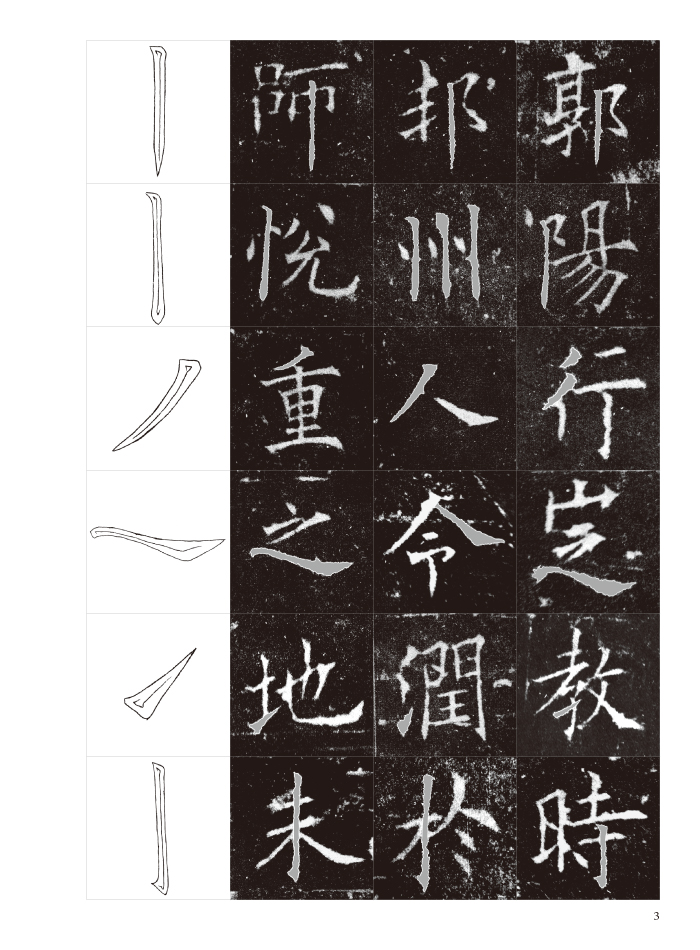 師 邦 郭
悦 州 陽
重 人 行
之 令
地 潤 教
未 於 時
3